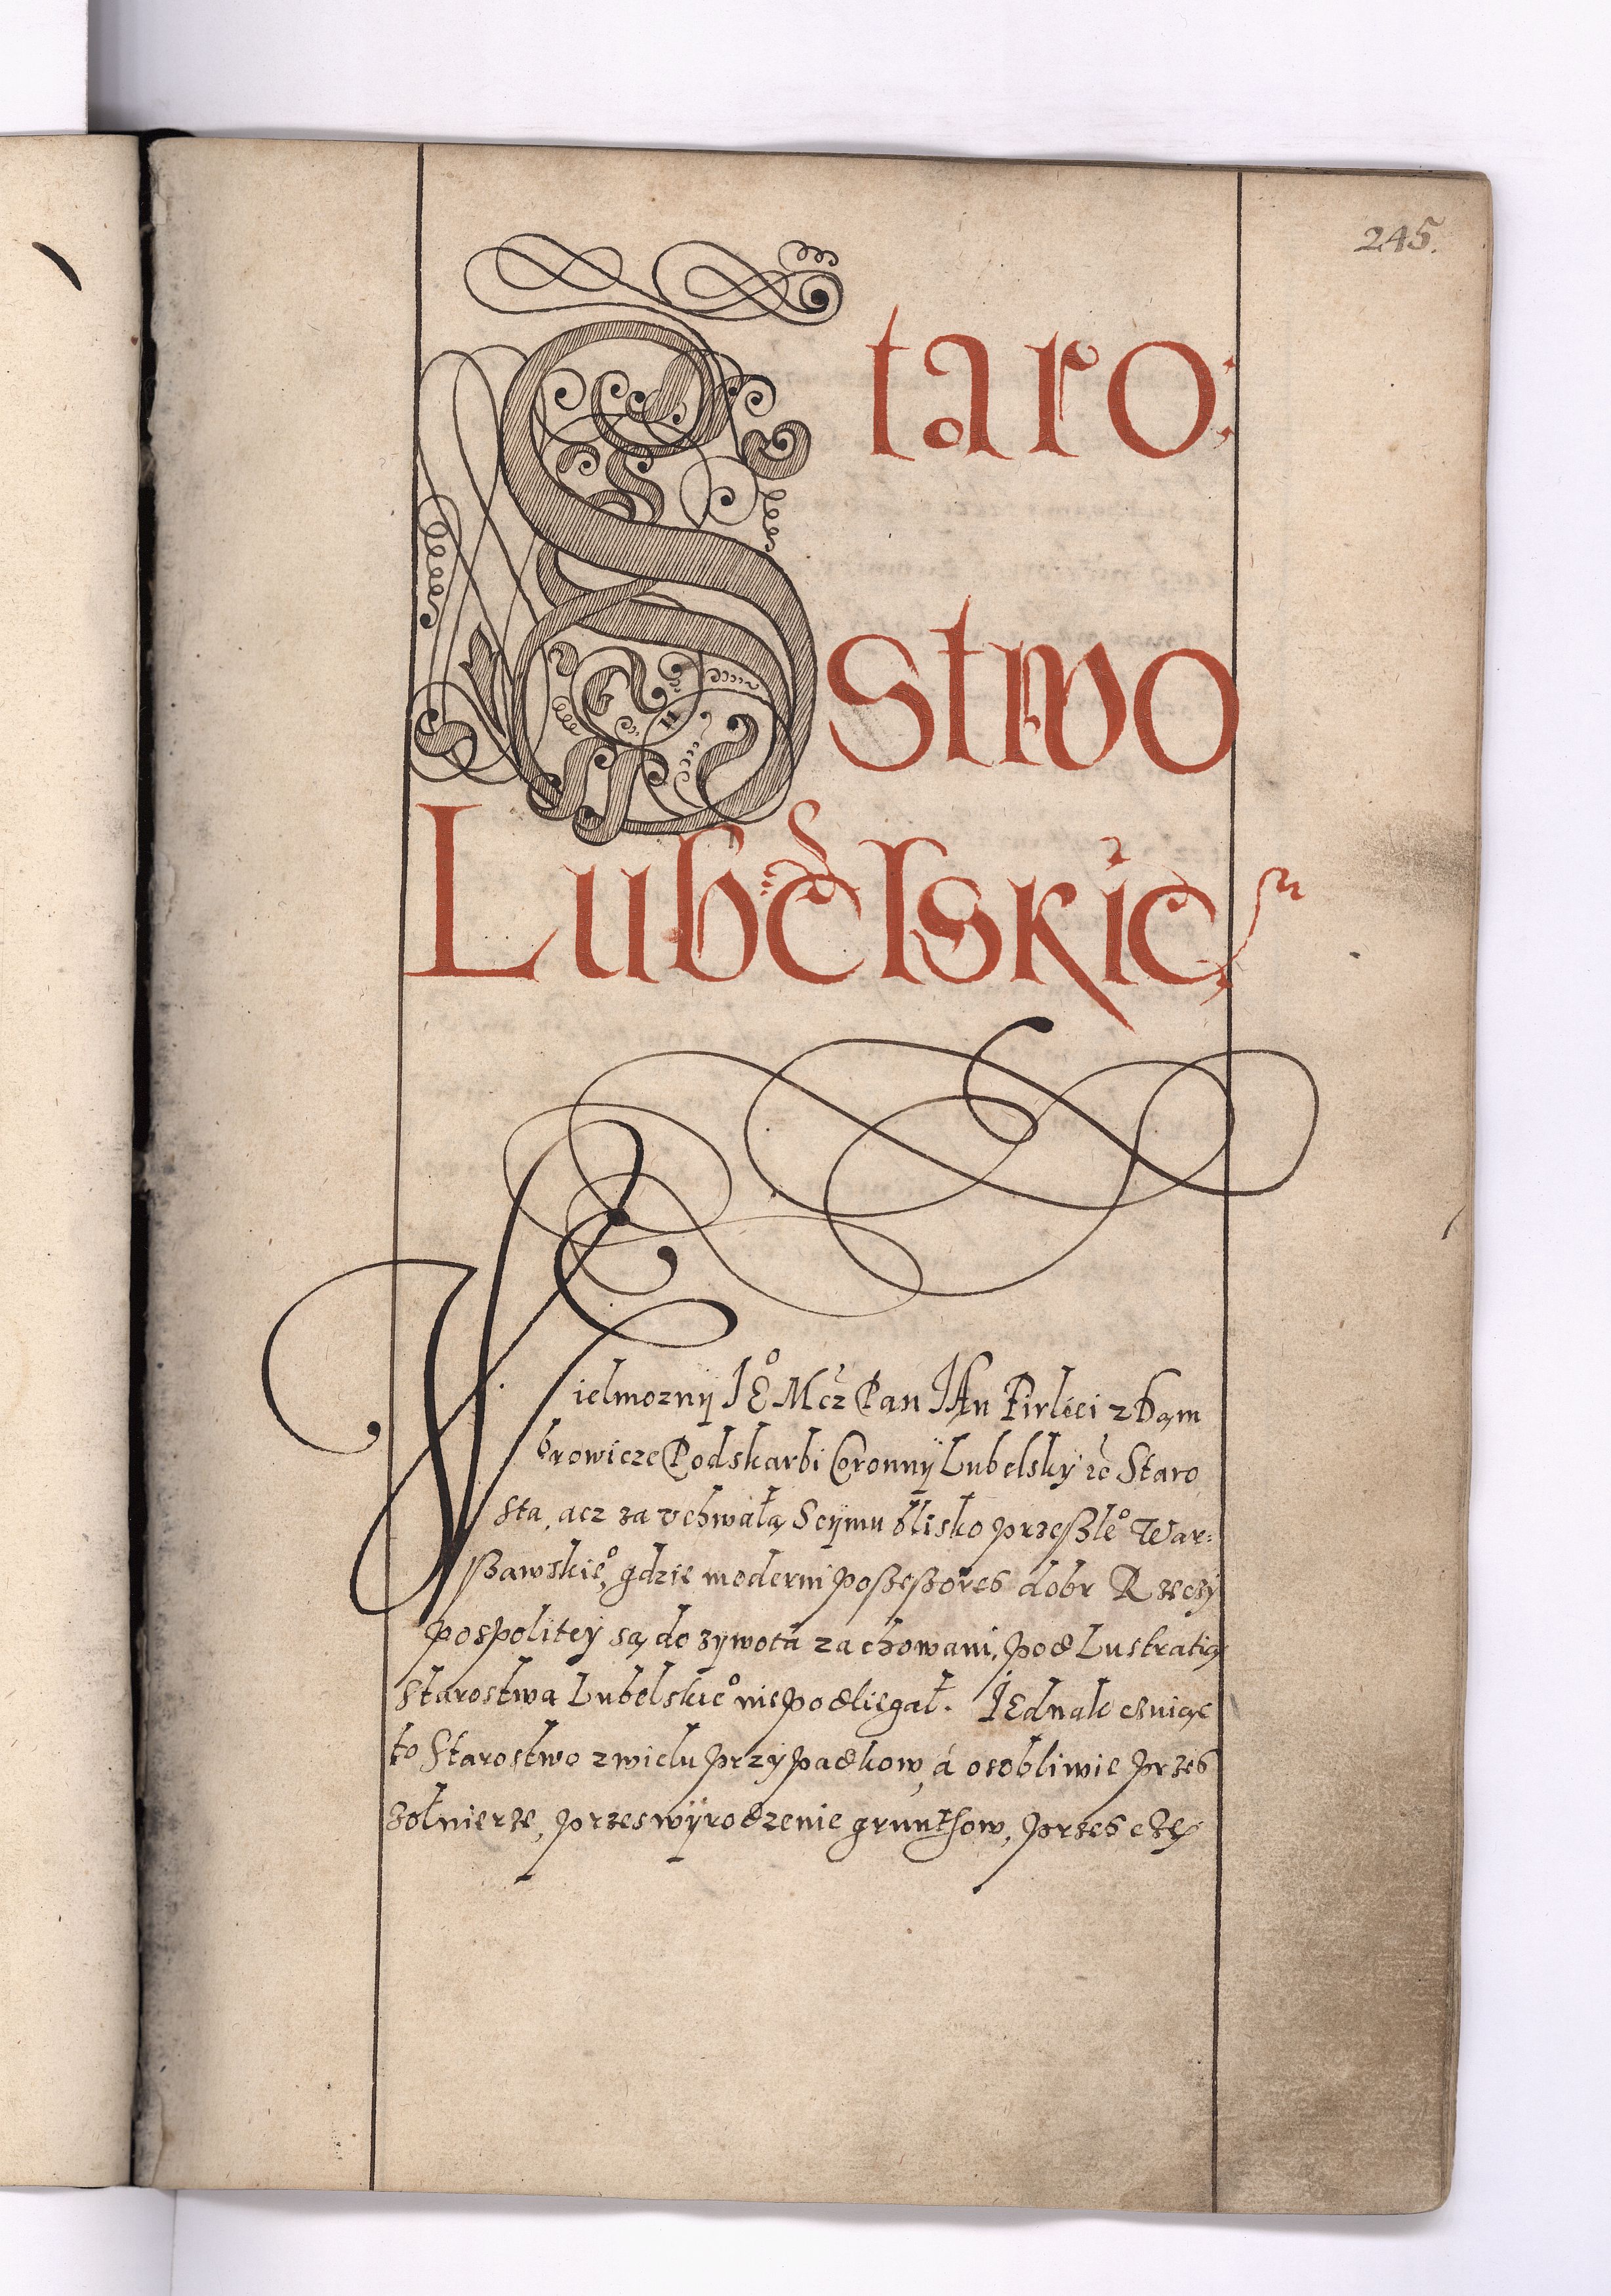 245.
Staro:
stwo
Lubelskie
Wielmozny Je° Mcz Pan JAn Firleei z Dąm
browicze Podskarbi Coronny Lubelsky ec Staro
sta, acz za vchwałą Seymu blisko przeszłe° War:
szawskie°, gdzie moderni possessores dobr Rzeczÿ
pospolitey są do zywota zachowani, pod Lustratią
Starostwa Lubelskie° nie podliegał. JEdnak czniąc
to Starostwo z wielu przypadkow, á osobliwie przes
zołnierze, przes wyrodzenie grunthow, przes czę